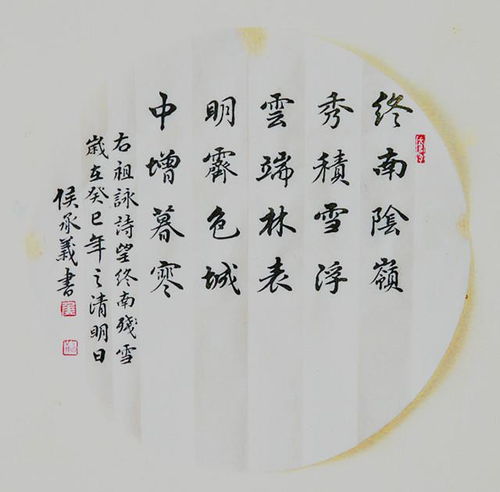 終南陰嶺
秀積雪浮
雲端林表
明霽色城
中增暮寒
右祖詠詩望終南殘雪
歲在癸巳年之清明日
侯承義書